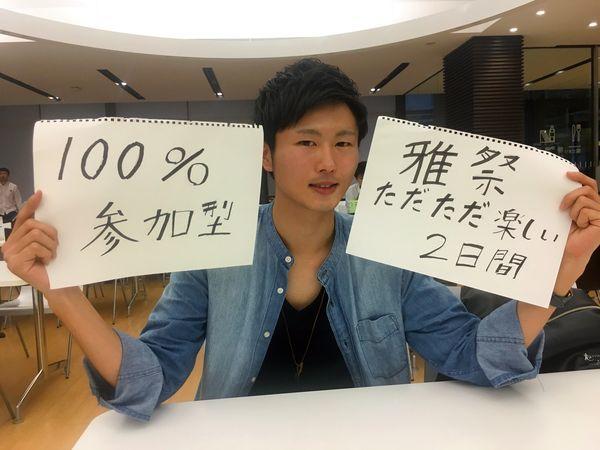 100%
参加型
雅祭
ただただ楽しい
2日間